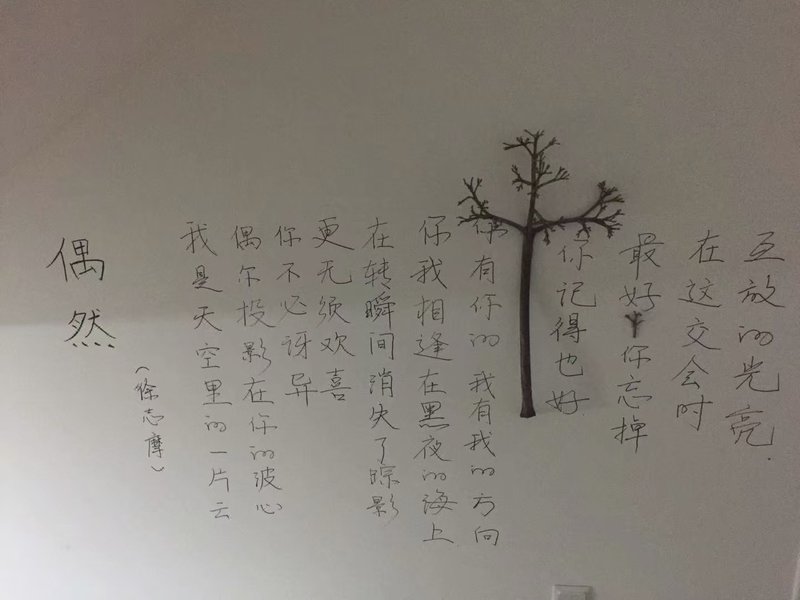 偶然
（徐志摩）
我是天空里的一片云
偶尔投影在你的波心
你不必讶异
更无须欢喜
在转瞬间消失了踪影
你我相逢在黑夜的海上
你有你的 我有我的方向
你记得也好
最好 你忘掉
在这交会时
互放的光亮.